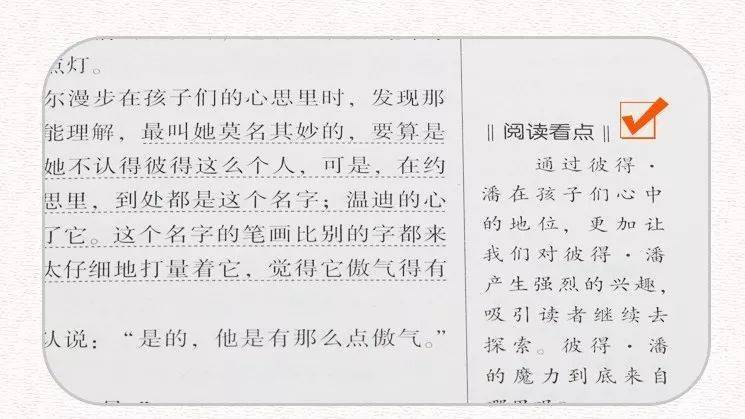 点灯。
尔漫步在孩子们的心思里时，发现那
能理解，最叫她莫名其妙的，要算是
她不认得彼得这么个人，可是，在约
思里，到处都是这个名字；温迪的心
了它。这个名字的笔画比别的字都来
太仔细地打量着它，觉得它傲气得有
认说：“是的，他是有那么点傲气。”
阅读看点
通过彼得·
潘在孩子们心中
的地位，更加让
我们对彼得·潘
产生强烈的兴趣，
吸引读者继续去
探索。彼得·潘
的魔力到底来自